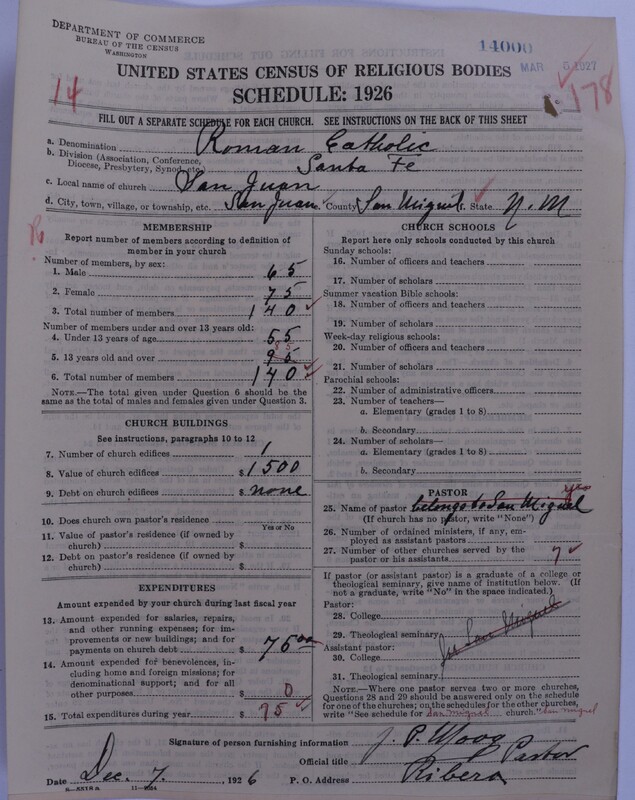 DEPARTMENT OF COMMERCE
BUREAU OF THE CENSUS
WASHINGTON
14000
MAR 5 1927
UNITED STATES CENSUS OF RELIGIOUS BODIES
SCHEDULE: 1926
14
178
FILL OUT A SEPARATE SCHEDULE FOR EACH CHURCH. SEE INSTRUCTIONS ON THE BACK OF THIS SHEET
a. Denomination Roman Catholic
b. Division (Association, Conference, Diocese, Presbytery, Synod, etc.) Santa Fe
c. Local name of church San Juan
d. City, town, village, or township, etc. San Juan County San Miguel State N. M
MEMBERSHIP
Report number of members according to definition of
member in your church
Number of members, by sex:
1. Male 65
2. Female 75
3. Total number of members 140
Number of members under and over 13 years old:
4. Under 13 years of age 55
85
5. 13 years old and over 95
6. Total number of members 140
NOTE.—The total given under Question 6 should be
same as the total of males and females given under Question 3.
CHURCH BUILDINGS
See instructions, paragraphs 10 to 12
7. Number of church edifices 1
8. Value of church edifices $ 1500
9. Debt on church edifices $ none
10. Does church own pastor's residence
Yes or No
11. Value of pastor's residence (if owned by
church) $
12. Debt on pastor's residence (if owned by
church) $
EXPENDITURES
Amount expended by your church during last fiscal year
13. Amount expended for salaries, repairs,
and other running expenses; for im-
provements or new buildings; and for
payments on church debt $ 75 00
14. Amount expended for benevolences,
including home and foreign missions; for
denominational support; and for all
other purposes $ 0
15. Total expenditures during year $ 75
CHURCH SCHOOLS
Report here only schools conducted by this church
Sunday schools:
16. Number of officers and teachers
17. Number of scholars
Summer vacation Bible schools:
18. Number of officers and teachers
19. Number of scholars
Week-day religious schools:
20. Number of officers and teachers
21. Number of scholars
Parochial schools:
22. Number of administrative officers
23. Number of teachers—
a. Elementary (grades 1 to 8)
b. Secondary
24. Number of scholars—
a. Elementary (grades 1 to 8)
b. Secondary
PASTOR
yes
25. Name of pastor belongs to San Miguel
(If church has no pastor, write "None")
26. Number of ordained ministers, if any, em-
ployed as assistant pastors
27. Number of other churches served by the
pastor or his assistants 7
If pastor (or assistant pastor) is a graduate of a college or
theological seminary, give name of institution below. (If
not a graduate, write "No" in the space indicated.)
Pastor:
28. College
29. Theological seminary
San Miguel
Assistant pastor:
30. College
31. Theological seminary
NOTE.—Where one pastor serves two or more churches,
Questions 28 and 29 should be answered only on the schedule
for one of the churches; on the schedules for the other churches,
write "See schedule for San Miguel church." San Miguel
Signature of person furnishing information J. P. Moog
Official title Pastor
Date Dec. 7, 1926 P. O. Address Ribera